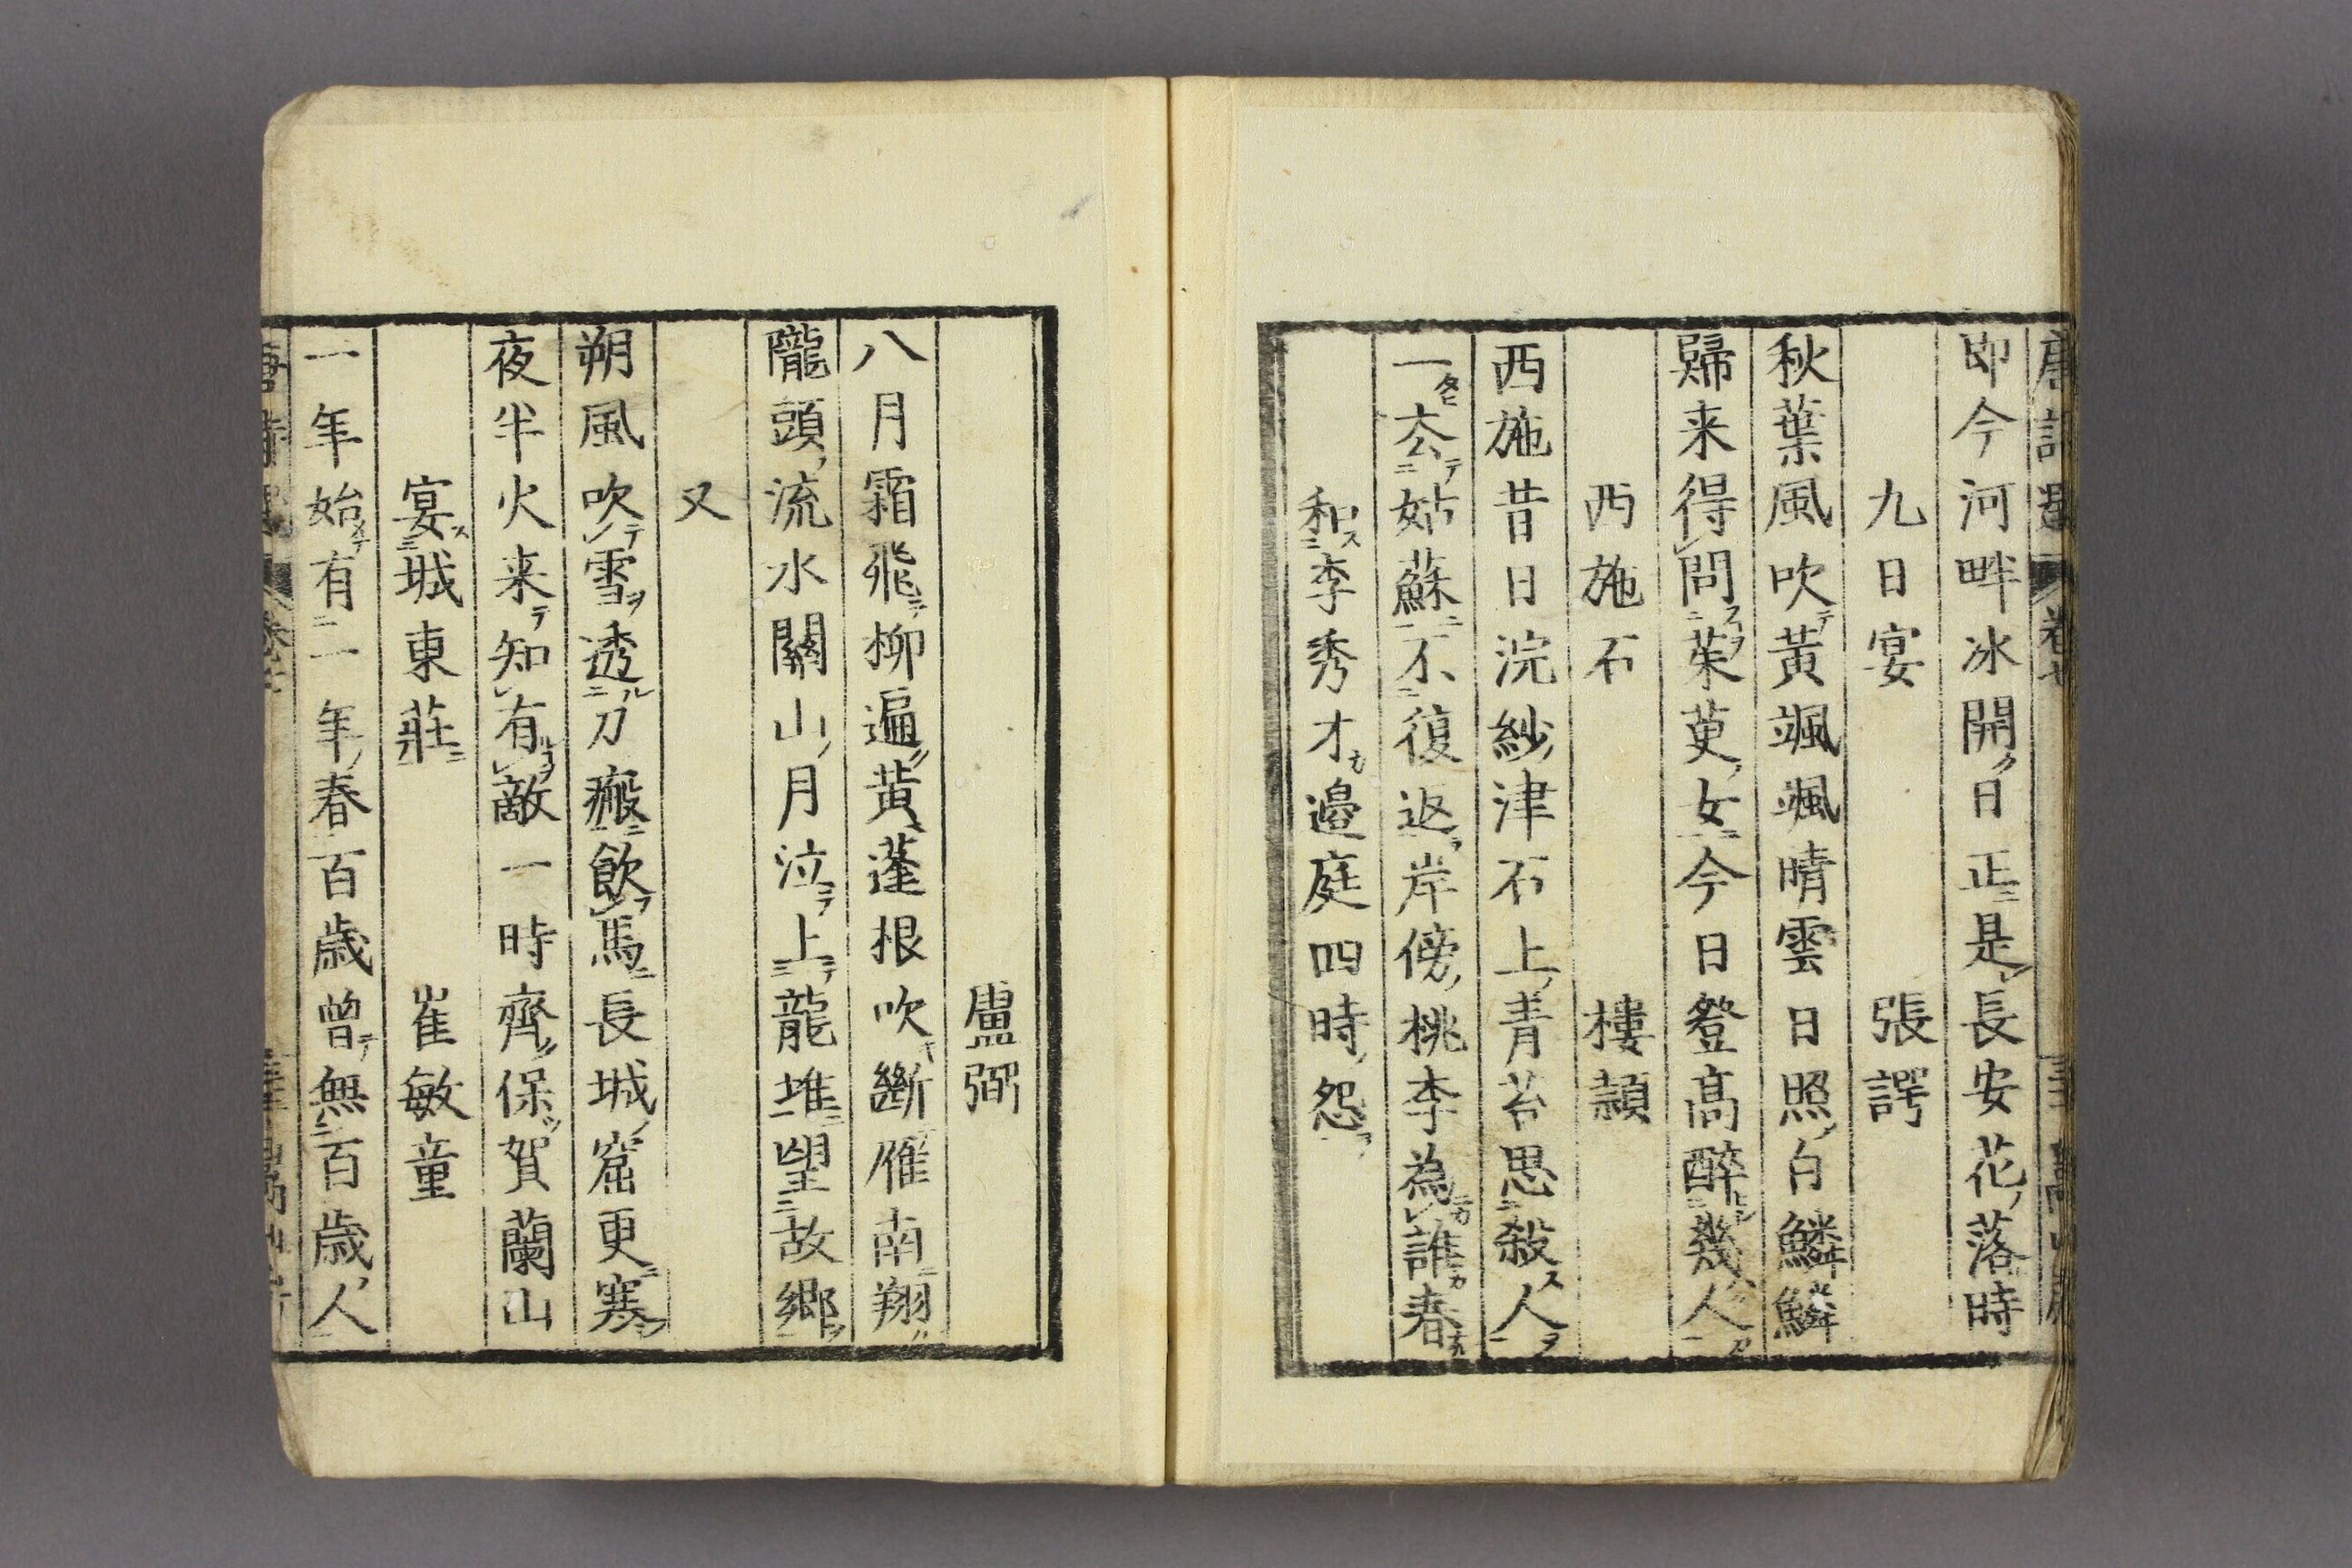 即今河畔冰開日正是長安花落時
九日宴　張諤
秋葉風吹黃颯颯晴雲日照白鱗鱗
歸来得問茱萸女今日登高醉幾人
西施石　樓頴
西施昔日浣紗津石上青苔思殺人
一去姑蘇不復返岸傍桃李為誰春
和李秀才邉庭四時怨
盧弼
八月霜飛柳遍黃蓬根吹斷雁南翔
隴頭流水關山月泣上龍堆望故鄉
又
朔風吹雪透刀瘢飲馬長城窟更寒
夜半火来知有敵一時齊保賀蘭山
宴城東莊　崔敏童
一年始有一年春百歳曾無百歳人